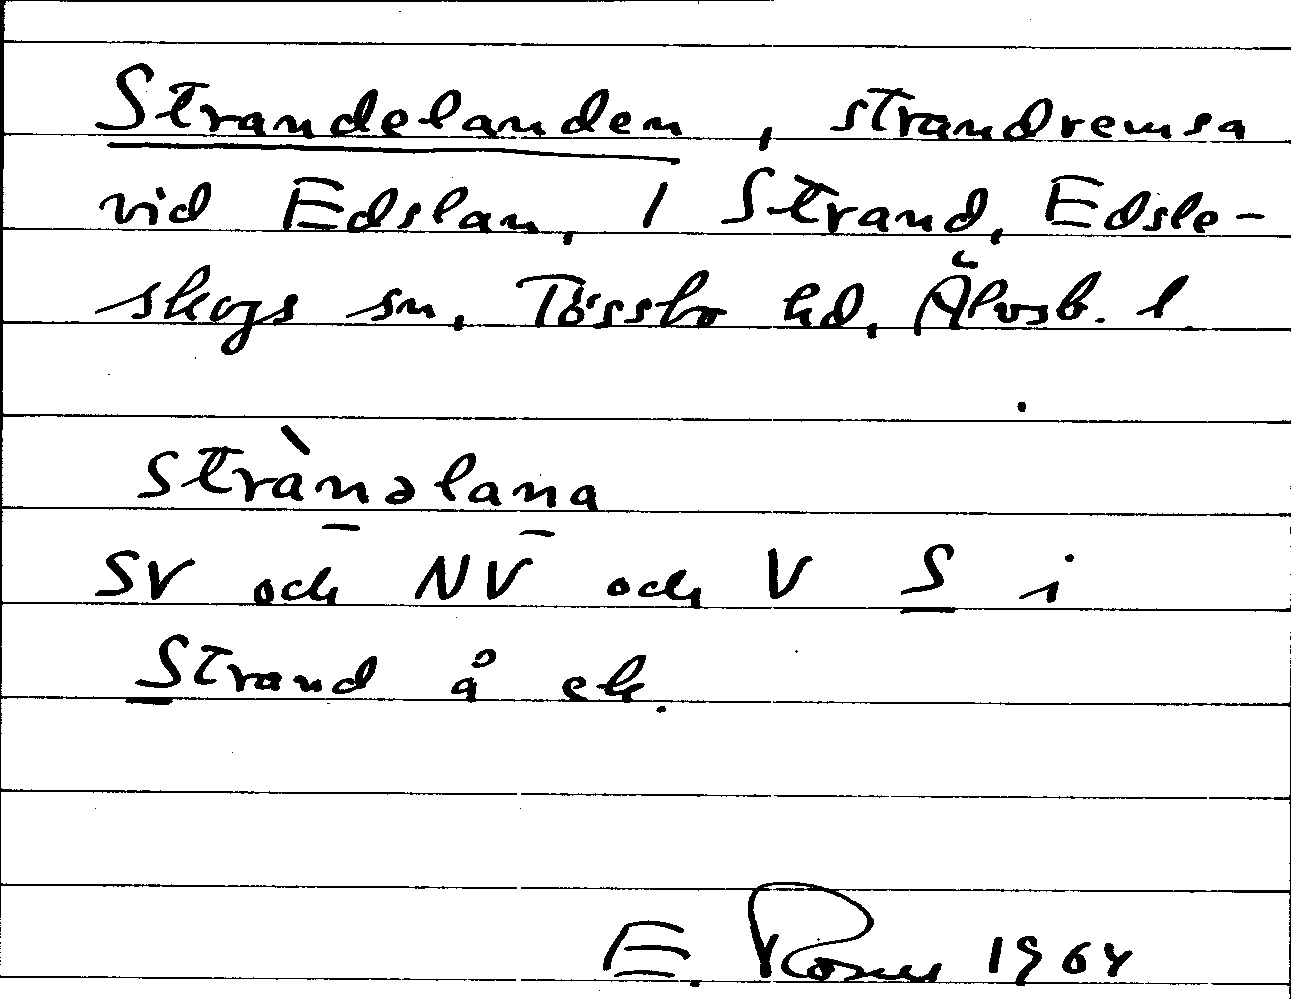 Strandelanden, strandremsa
vid Edslan, i Strand, Edsle-
skogs sn, Tössbo hd, Älvsb. l.
stràn̲əlan̲a
SV och NV och V S i
Strand å ek.
E. 1964